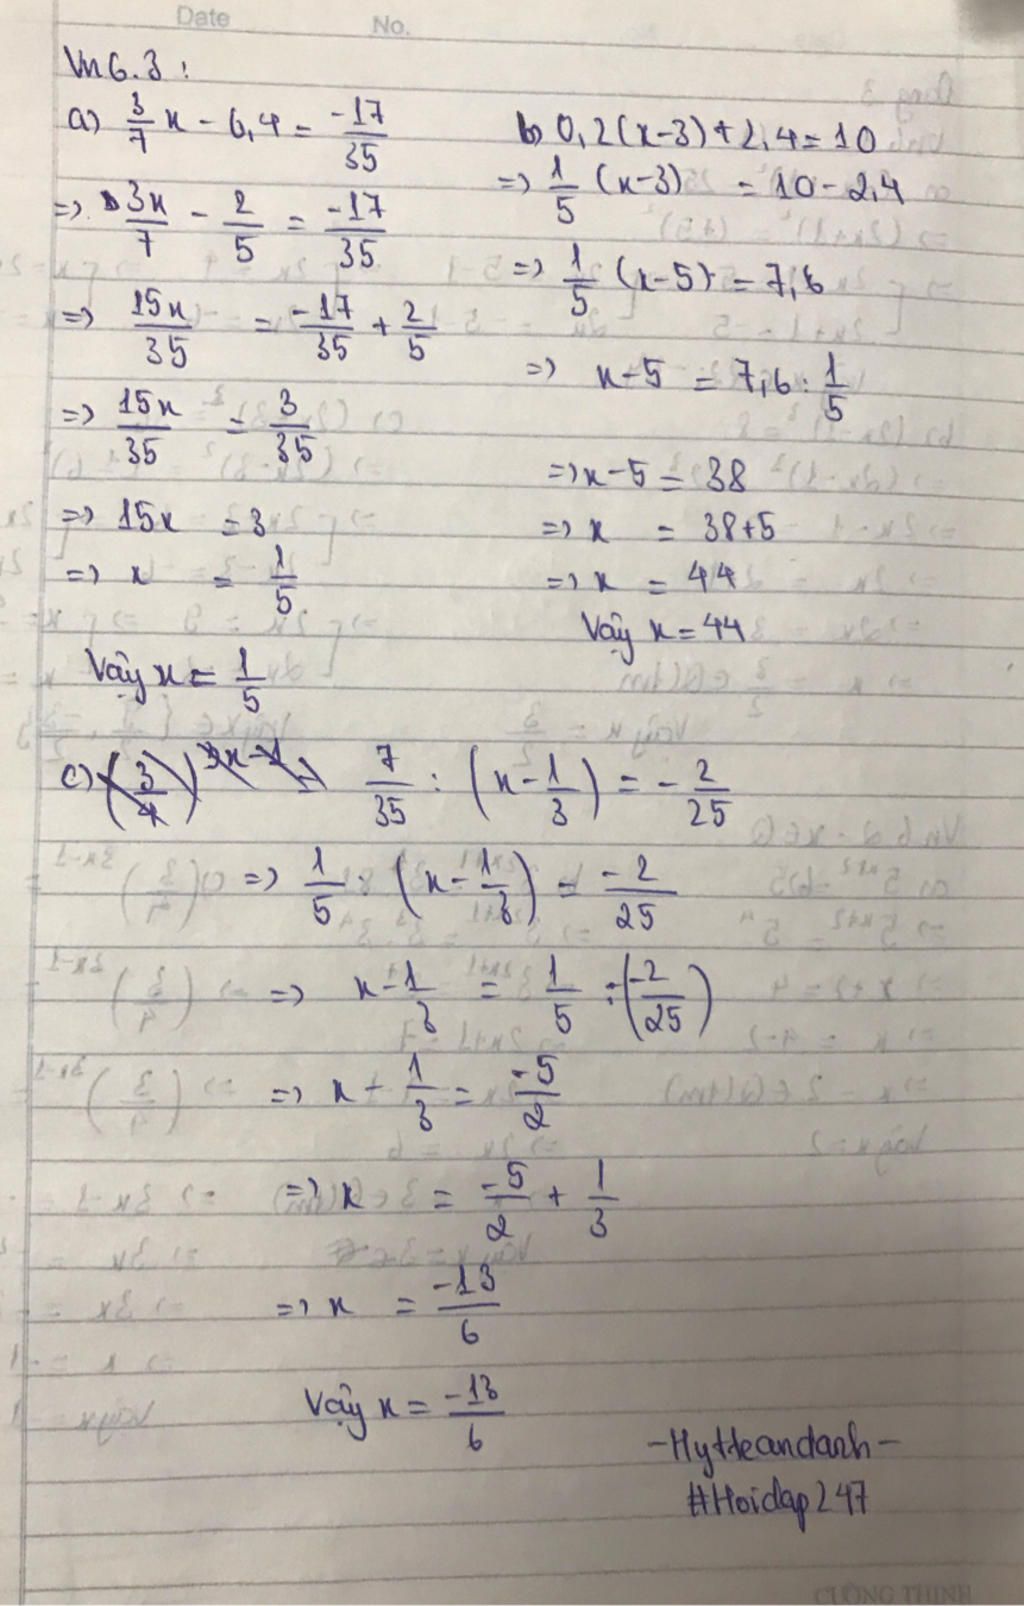 Date No.
Vn6.3:
a) 3/7 x - 0,4 = -17/35
=> 3x/7 - 2/5 = -17/35
=> 15x/35 = -17/35 + 2/5
=> 15x/35 = 3/35
=> 15x = 3
=> x = 1/5
Vậy x = 1/5
b) 0,2(x-3)+2,4=10
=> 1/5 (x-3) = 10-2,4
=> 1/5 (x-5) = 7,6
=> x-5 = 7,6 : 1/5
=> x-5 = 38
=> x = 38+5
=> x = 44
Vậy x = 44
c) 7/35 : (x - 1/3) = - 2/25
=> 1/5 : (x - 1/3) = -2/25
=> x - 1/3 = 1/5 : (-2/25)
=> x - 1/3 = -5/2
=> x = -5/2 + 1/3
=> x = -13/6
Vậy x = -13/6
#Hoidap247
CUONG THINH